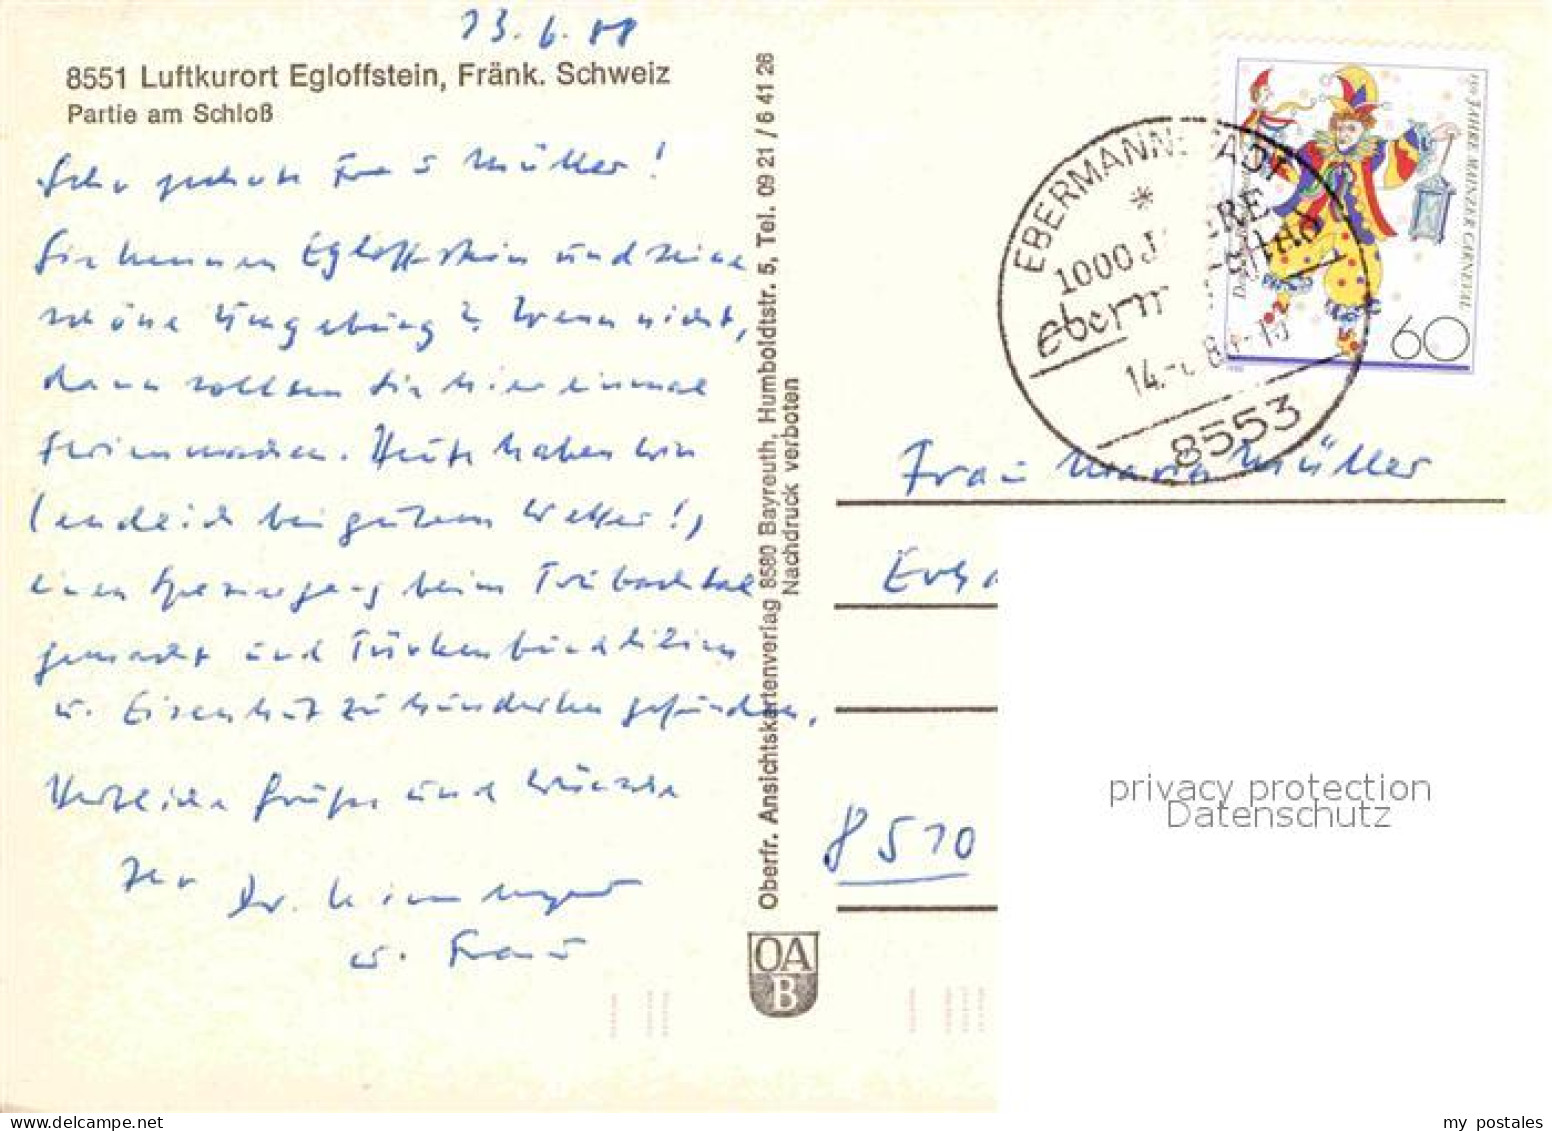 13.6.88
8551 Luftkurort Egloffstein, Fränk. Schweiz
Partie am Schloß
Sehr geehrte Frau Müller!
Sie kennen Egloffstein und seine
schöne Umgebung? Wenn nicht,
dann sollten Sie hier einmal
Ferien machen. Heute haben wir
(endlich bei gutem Wetter!)
einen Spaziergang beim Trubachtal
gemacht und Türkenbundlilien
u. Eisenhut zu Hunderten gefunden.
Herzliche Grüße und Wünsche
Ihr
Dr.
u. Frau
Oberfr. Ansichtskartenverlag 8580 Bayreuth, Humboldtstr. 5, Tel. 09 21 / 6 41 26
Nachdruck verboten
OAB
150 JAHRE MAINZER CARNEVAL
60
EBERMANNSTADT
1000 JAHRE
8553
Frau Maria Müller
8510
privacy protection
Datenschutz
my postales